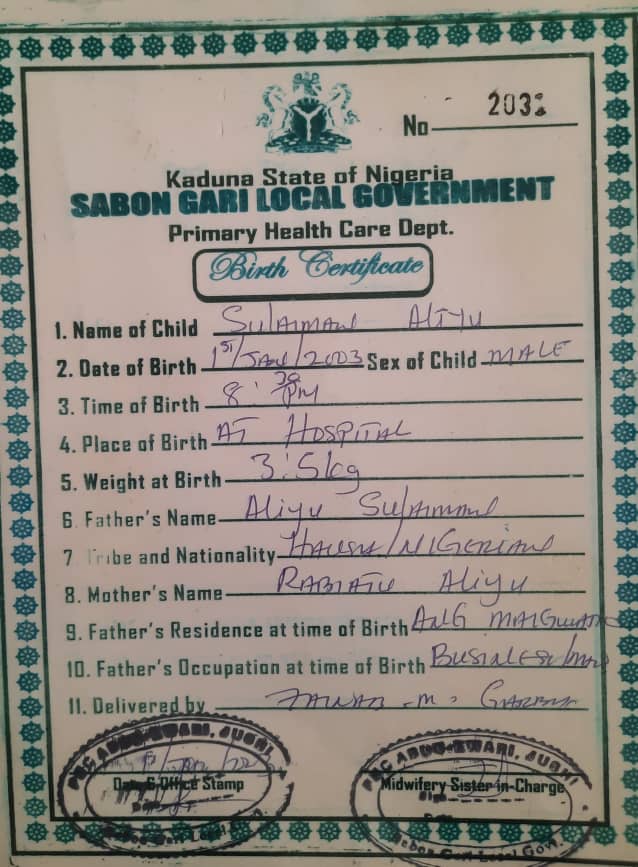 No 2031
Kaduna State of Nigeria
SABON GARI LOCAL GOVERNMENT
Primary Health Care Dept.
Birth Certificate
1. Name of Child Sulaiman Aliyu
2. Date of Birth 1st/Jan/2003 Sex of Child MALE
3. Time of Birth 8:30 PM
4. Place of Birth AT HOSPITAL
5. Weight at Birth 3:5kg
6. Father's Name Aliyu Sulaiman
7 Tribe and Nationality Hausa/NIGERIAN
8. Mother's Name RABIATU Aliyu
9. Father's Residence at time of Birth ANG
10. Father's Occupation at time of Birth Business/man
11. Delivered by ZAINAB .M. GARBA
Date & Office Stamp
Midwifery Sister-in-Charge